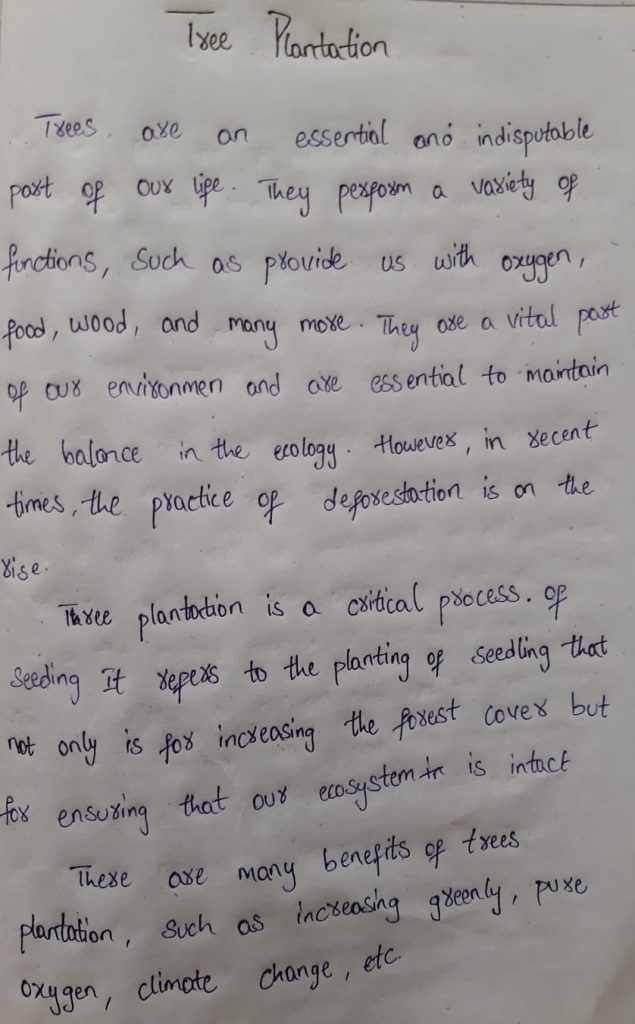 Tree Plantation
Trees. are an essential and indisputable
part of our life. They perform a variety of
functions, Such as provide us with oxygen,
food, wood, and many more. They are a vital part
of our environmen and are essential to maintain
the balance in the ecology. However, in recent
times, the practice of deforestation is on the
rise.
Three plantation is a critical process. of
Seeding It refers to the planting of seedling that
not only is for increasing the forest cover but
for ensuring that our ecosystem is intact
There are many benefits of trees
plantation, Such as increasing greenly, pure
oxygen, climate change, etc.